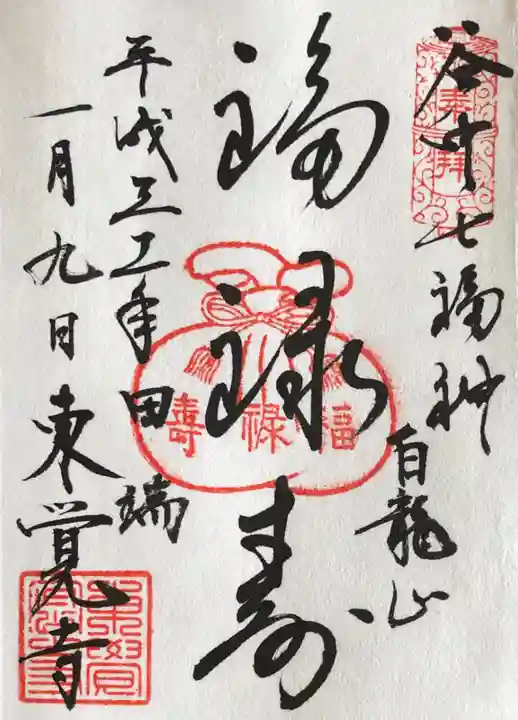 奉拝
谷中七福神
白龍山
福禄寿
福禄寿
平成三十一年
一月九日
田端
東覚寺